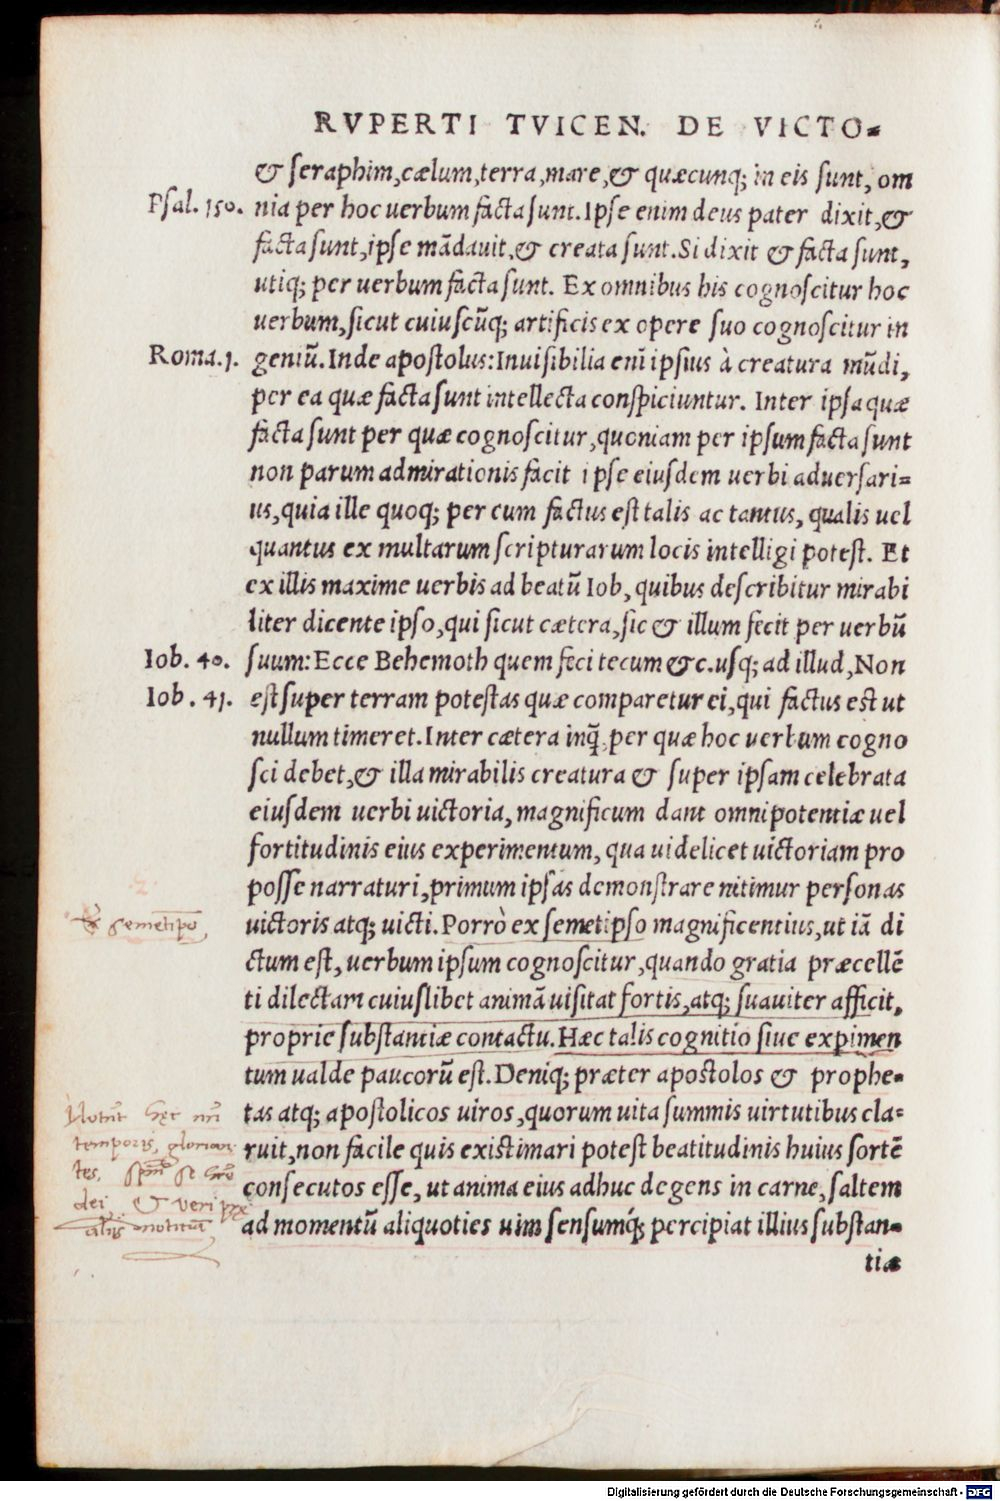 RVPERTI TVICEN. DE VICTO=
& seraphim, cælum, terra, mare, & quæcunq; in eis sunt, om
Psal. 150. nia per hoc uerbum facta sunt. Ipse enim deus pater dixit, &
facta sunt, ipse mādauit, & creata sunt. Si dixit & facta sunt,
utiq; per uerbum facta sunt. Ex omnibus his cognoscitur hoc
uerbum, sicut cuiuscūq; artificis ex opere suo cognoscitur in
Roma. 1. geniū. Inde apostolus: Inuisibilia enī ipsius à creatura mūdi,
per ea quæ facta sunt intellecta conspiciuntur. Inter ipsa quæ
facta sunt per quæ cognoscitur, quoniam per ipsum facta sunt
non parum admirationis facit ipse eiusdem uerbi aduersari=
us, quia ille quoq; per eum factus est talis ac tantus, qualis uel
quantus ex multarum scripturarum locis intelligi potest. Et
ex illis maxime uerbis ad beatū Iob, quibus describitur mirabi
liter dicente ipso, qui sicut cætera, sic & illum fecit per uerbū
Iob. 40. suum: Ecce Behemoth quem feci tecum &c. usq; ad illud, Non
Iob. 41. est super terram potestas quæ comparetur ei, qui factus est ut
nullum timeret. Inter cætera inq̄, per quæ hoc uerbum cogno
sci debet, & illa mirabilis creatura & super ipsam celebrata
eiusdem uerbi uictoria, magnificum dant omnipotentiæ uel
fortitudinis eius experimentum, qua uidelicet uictoriam pro
posse narraturi, primum ipsas demonstrare nitimur personas
uictoris atq; uicti. Porrò ex semetipso magnificentius, ut iā di
ctum est, uerbum ipsum cognoscitur, quando gratia præcellē
ti dilectam cuiuslibet animā uisitat fortis, atq; suauiter afficit,
proprie substantiæ contactu. Hæc talis cognitio siue expimen
tum ualde paucorū est. Deniq; præter apostolos & prophe=
tas atq; apostolicos uiros, quorum uita summis uirtutibus cla=
ruit, non facile quis existimari potest beatitudinis huius sortē
consecutos esse, ut anima eius adhuc degens in carne, saltem
ad momentū aliquoties uim sensumq́; percipiat illius substan=
tiæ
semetipso,
temporis,
dei, & veri
Digitalisierung gefördert durch die Deutsche Forschungsgemeinschaft - DFG